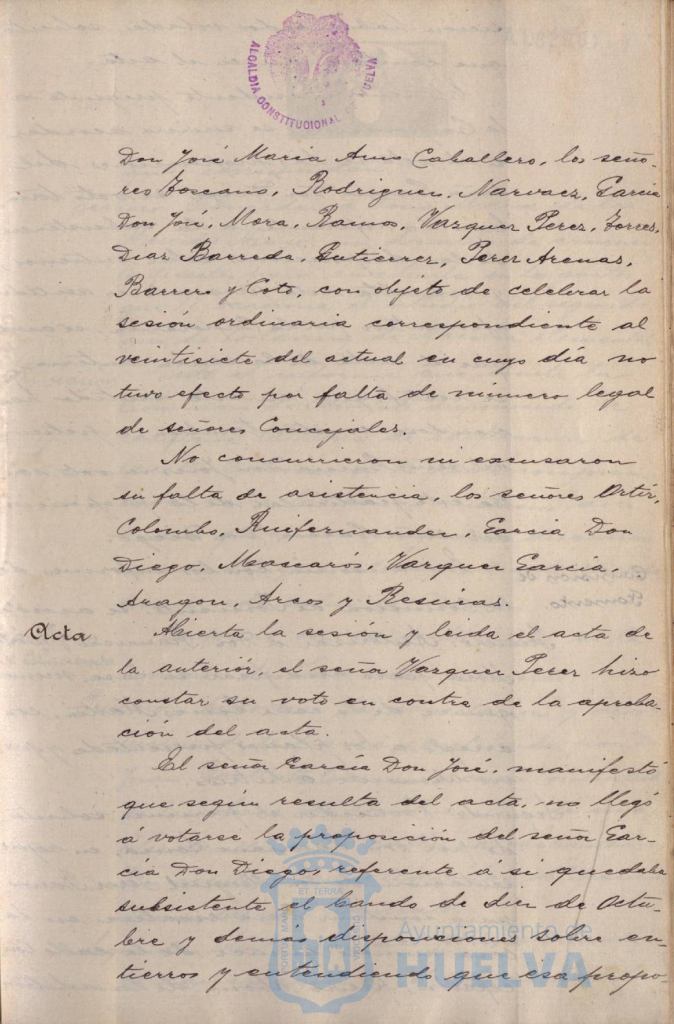 ALCALDIA CONSTITUCIONAL HUELVA
Don José Maria Amo Caballero, los seño-
res Toscano, Rodriguez, Narvaez, Garcia
Don José, Mora, Ramos, Vazquez Perez, Torres,
Diaz Barreda, Gutierrez, Perez Arenas,
Barrero y Coto, con objeto de celebrar la
sesión ordinaria correspondiente al
veintisiete del actual en cuyo día no
tuvo efecto por falta de número legal
de señores Concejales.
No concurrieron ni excusaron
su falta de asistencia, los señores Ortiz,
Colombo, Ruifernandez, Garcia Don
Diego, Mascarós, Vazquez García,
Aragon, Arcos y Resinas.
Acta
Abierta la sesión y leida el acta de
la anterior, el señor Vazquez Perez hizo
constar su voto en contra de la aproba-
ción del acta.
El señor García Don José, manifestó
que según resulta del acta, no llegó
á votarse la proposición del señor Gar-
cía Don Diego, referente á si quedaba
subsistente el bando de diez de Octu-
bre y demás disposiciones sobre en-
tierros y entendiendo que esa propo-
Ayuntamiento de
HUELVA